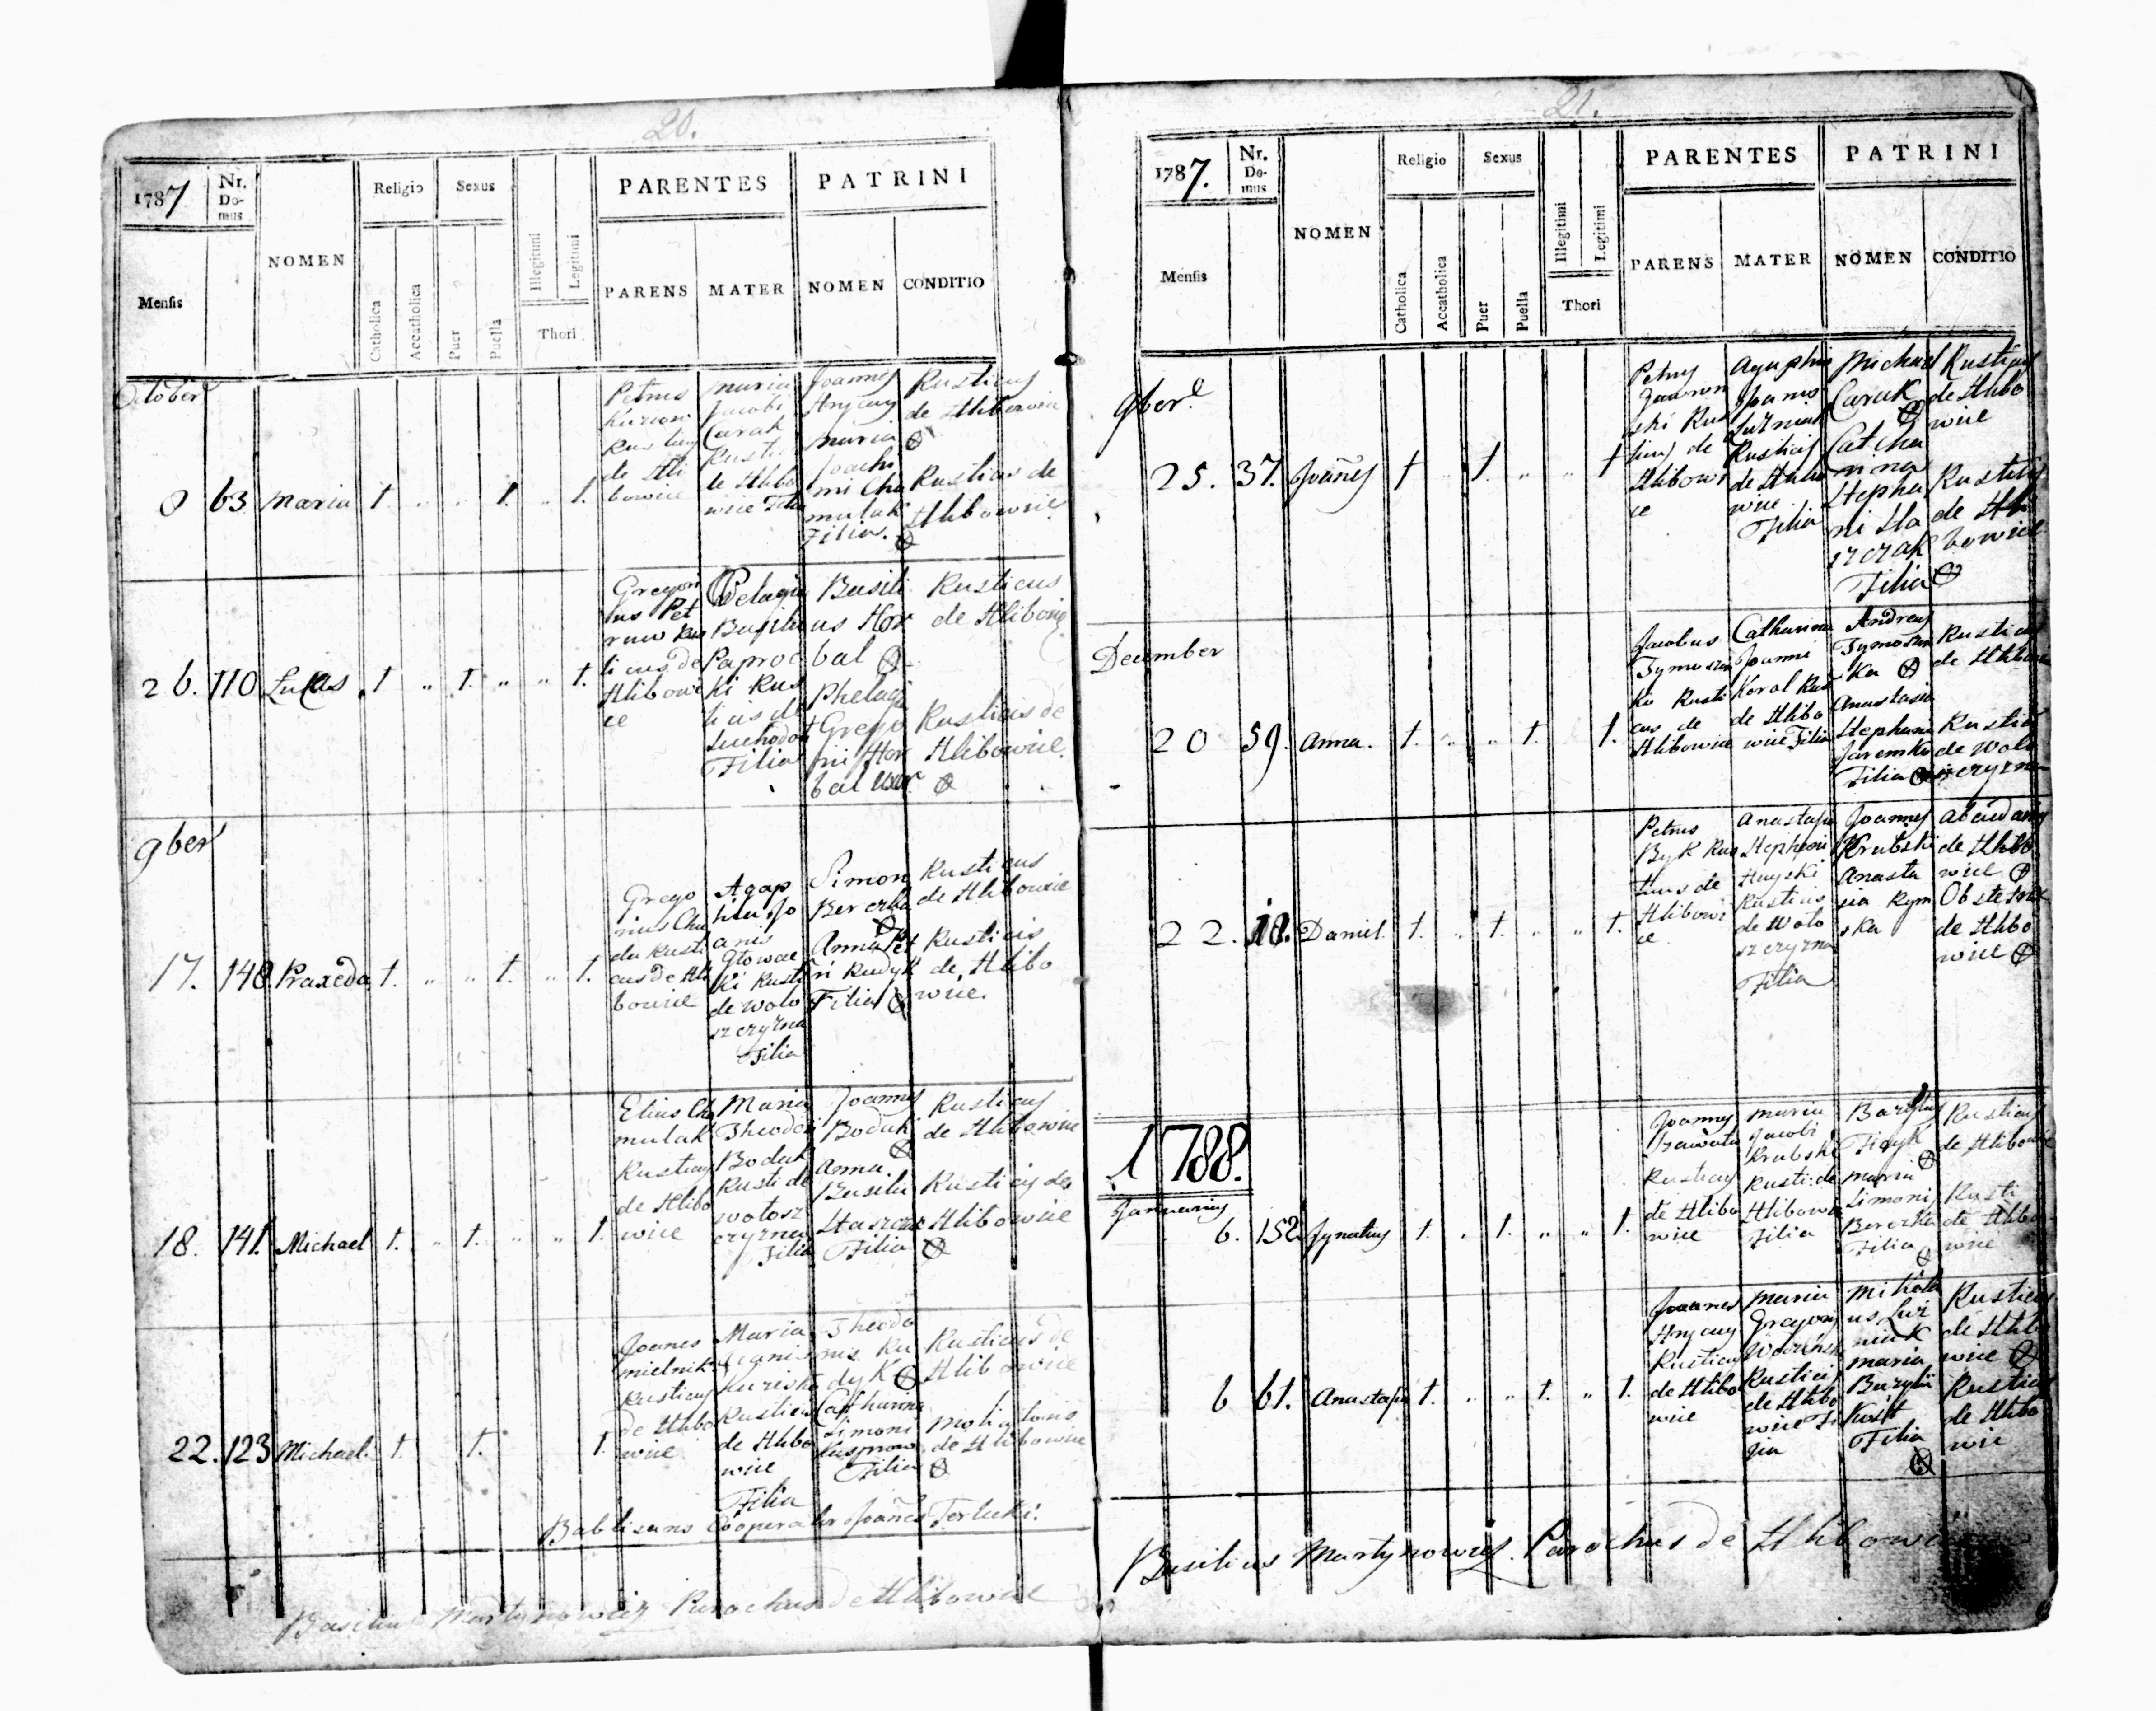 20.
1787
Nr. Domus
NOMEN
Religio
Sexus
Illegitimi
Legitimi
Thori
PARENTES
PATRINI
Mensis
Catholica
Accatholica
Puer
Puella
PARENS
MATER
NOMEN
CONDITIO
October
8 63 Maria 1. 1. 1.
Petrus
Rusticus
de Hli
bowice
Maria
Jacobi
Carak
Rusti
de Hlibo
wice Filia
Joannes
Hryceny
Maria
Joachi
mi Cho
mulak
Filia.
Rusticus
de Hlibowice
Rusticus de
Hlibowice
26. 110 Lucas 1 1. 1.
Gregori
us Pet
ruw Rus
ticus de
Hlibowi
ce
Pelagia
Basilii
Paproc
ki Rus
ticus de
Suchodol
Filia
Basili
us Hor
bal
Phelagi
Grego
rii Hor
bal uxor
Rusticus
de Hlibowice
Rusticus de
Hlibowice
9ber
17. 148 Praxeda 1. 1. 1.
Grego
rius Chu
da Rusti
cus de Hli
bowice
Agap
hia Jo
anis
Glowac
ki Rusti
de Wolo
szczyzna
Filia
Simon
Berezka
Anna Pet
ri Rudyk
Filia
Rusticus
de Hlibowice
Rusticis
de Hlibo
wice.
18. 141. Michael 1. 1. 1.
Elias Cho
mulak
Rusticus
de Hlibo
wice
Maria
Theodori
Boduk
Rusti de
Wolosz
czyzna
Filia
Joannes
Boduk
Anna
Basilii
Filia
Rusticus
de Hlibowice
Rusticus de
Hlibowice
22. 123 Michael. 1. 1. 1.
Joanes
Mielnik
Rusticus
de Hlibo
wice
Maria
Rusticus
de Hlibo
wice
Filia
Theodo
rus Ru
dyk
Catharina
Simoni
Filia
Rusticus de
Hlibowice
Molitoris
de Hlibowice
Babtisans Cooperator Joañes Terlecki.
Basilius Martynowicz Parochus de Hlibowice
21.
1787.
Nr. Domus
NOMEN
Religio
Sexus
Illegitimi
Legitimi
Thori
PARENTES
PATRINI
Mensis
Catholica
Accatholica
Puer
Puella
PARENS
MATER
NOMEN
CONDITIO
9bere
25. 37. Joañes 1 1. 1
Petrus
Jawron
ski Rus
ticus de
Hlibowi
ce
Agaphia
Joanis
Rusticus
de Hlibo
wice
Filia
Michael
Carak
Catha
rina
Stepha
ni Ha
szczak
Filia
Rusticus
de Hlibo
wice
Rusticus
de Hli
bowice
December
20 59. Anna. 1. 1. 1.
Jacobus
Tymoszen
ko Rusti
cus de
Hlibowice
Catharina
Joanni
Korol Rust
de Hlibo
wice Filia
Andreas
Tymoszen
ka
Anastasia
Stephani
Jaremko
Filia
Rusticus
de Hlibowice
Rusticus
de Wolo
szczyzna
22. 10. Daniel 1. 1. 1.
Petrus
Byk Rus
ticus de
Hlibowi
ce
Anastasia
Stephani
Hayski
Rusticus
de Woło
szczyzna
Filia
Joannes
Krubski
Anasta
sia Rym
ska
de Hlibo
wice
Obstetrix
de Hlibo
wice
1788.
Januarius
6. 152. Jgnatius 1. 1. 1.
Joannes
Rusticus
de Hlibo
wice
Maria
Jacobi
Krubski
Rusti: de
Hlibowice
Filia
Fidyk
Maria
Simonis
Berezka
Filia
Rusticus
de Hlibowice
Rusti
de Hlibo
wice
6 61. Anastasia 1. 1. 1.
Joannes
Hryceny
Rusticus
de Hlibo
wice
Maria
Gregory
Rusticus
de Hlibo
wice Fi
lia
Mikola
us Luz
niak
Maria
Bazylii
Filia
Rusticus
de Hlibo
wice
Rusticus
de Hlibo
wic
Basilius Martynowicz Parochus de Hlibowice